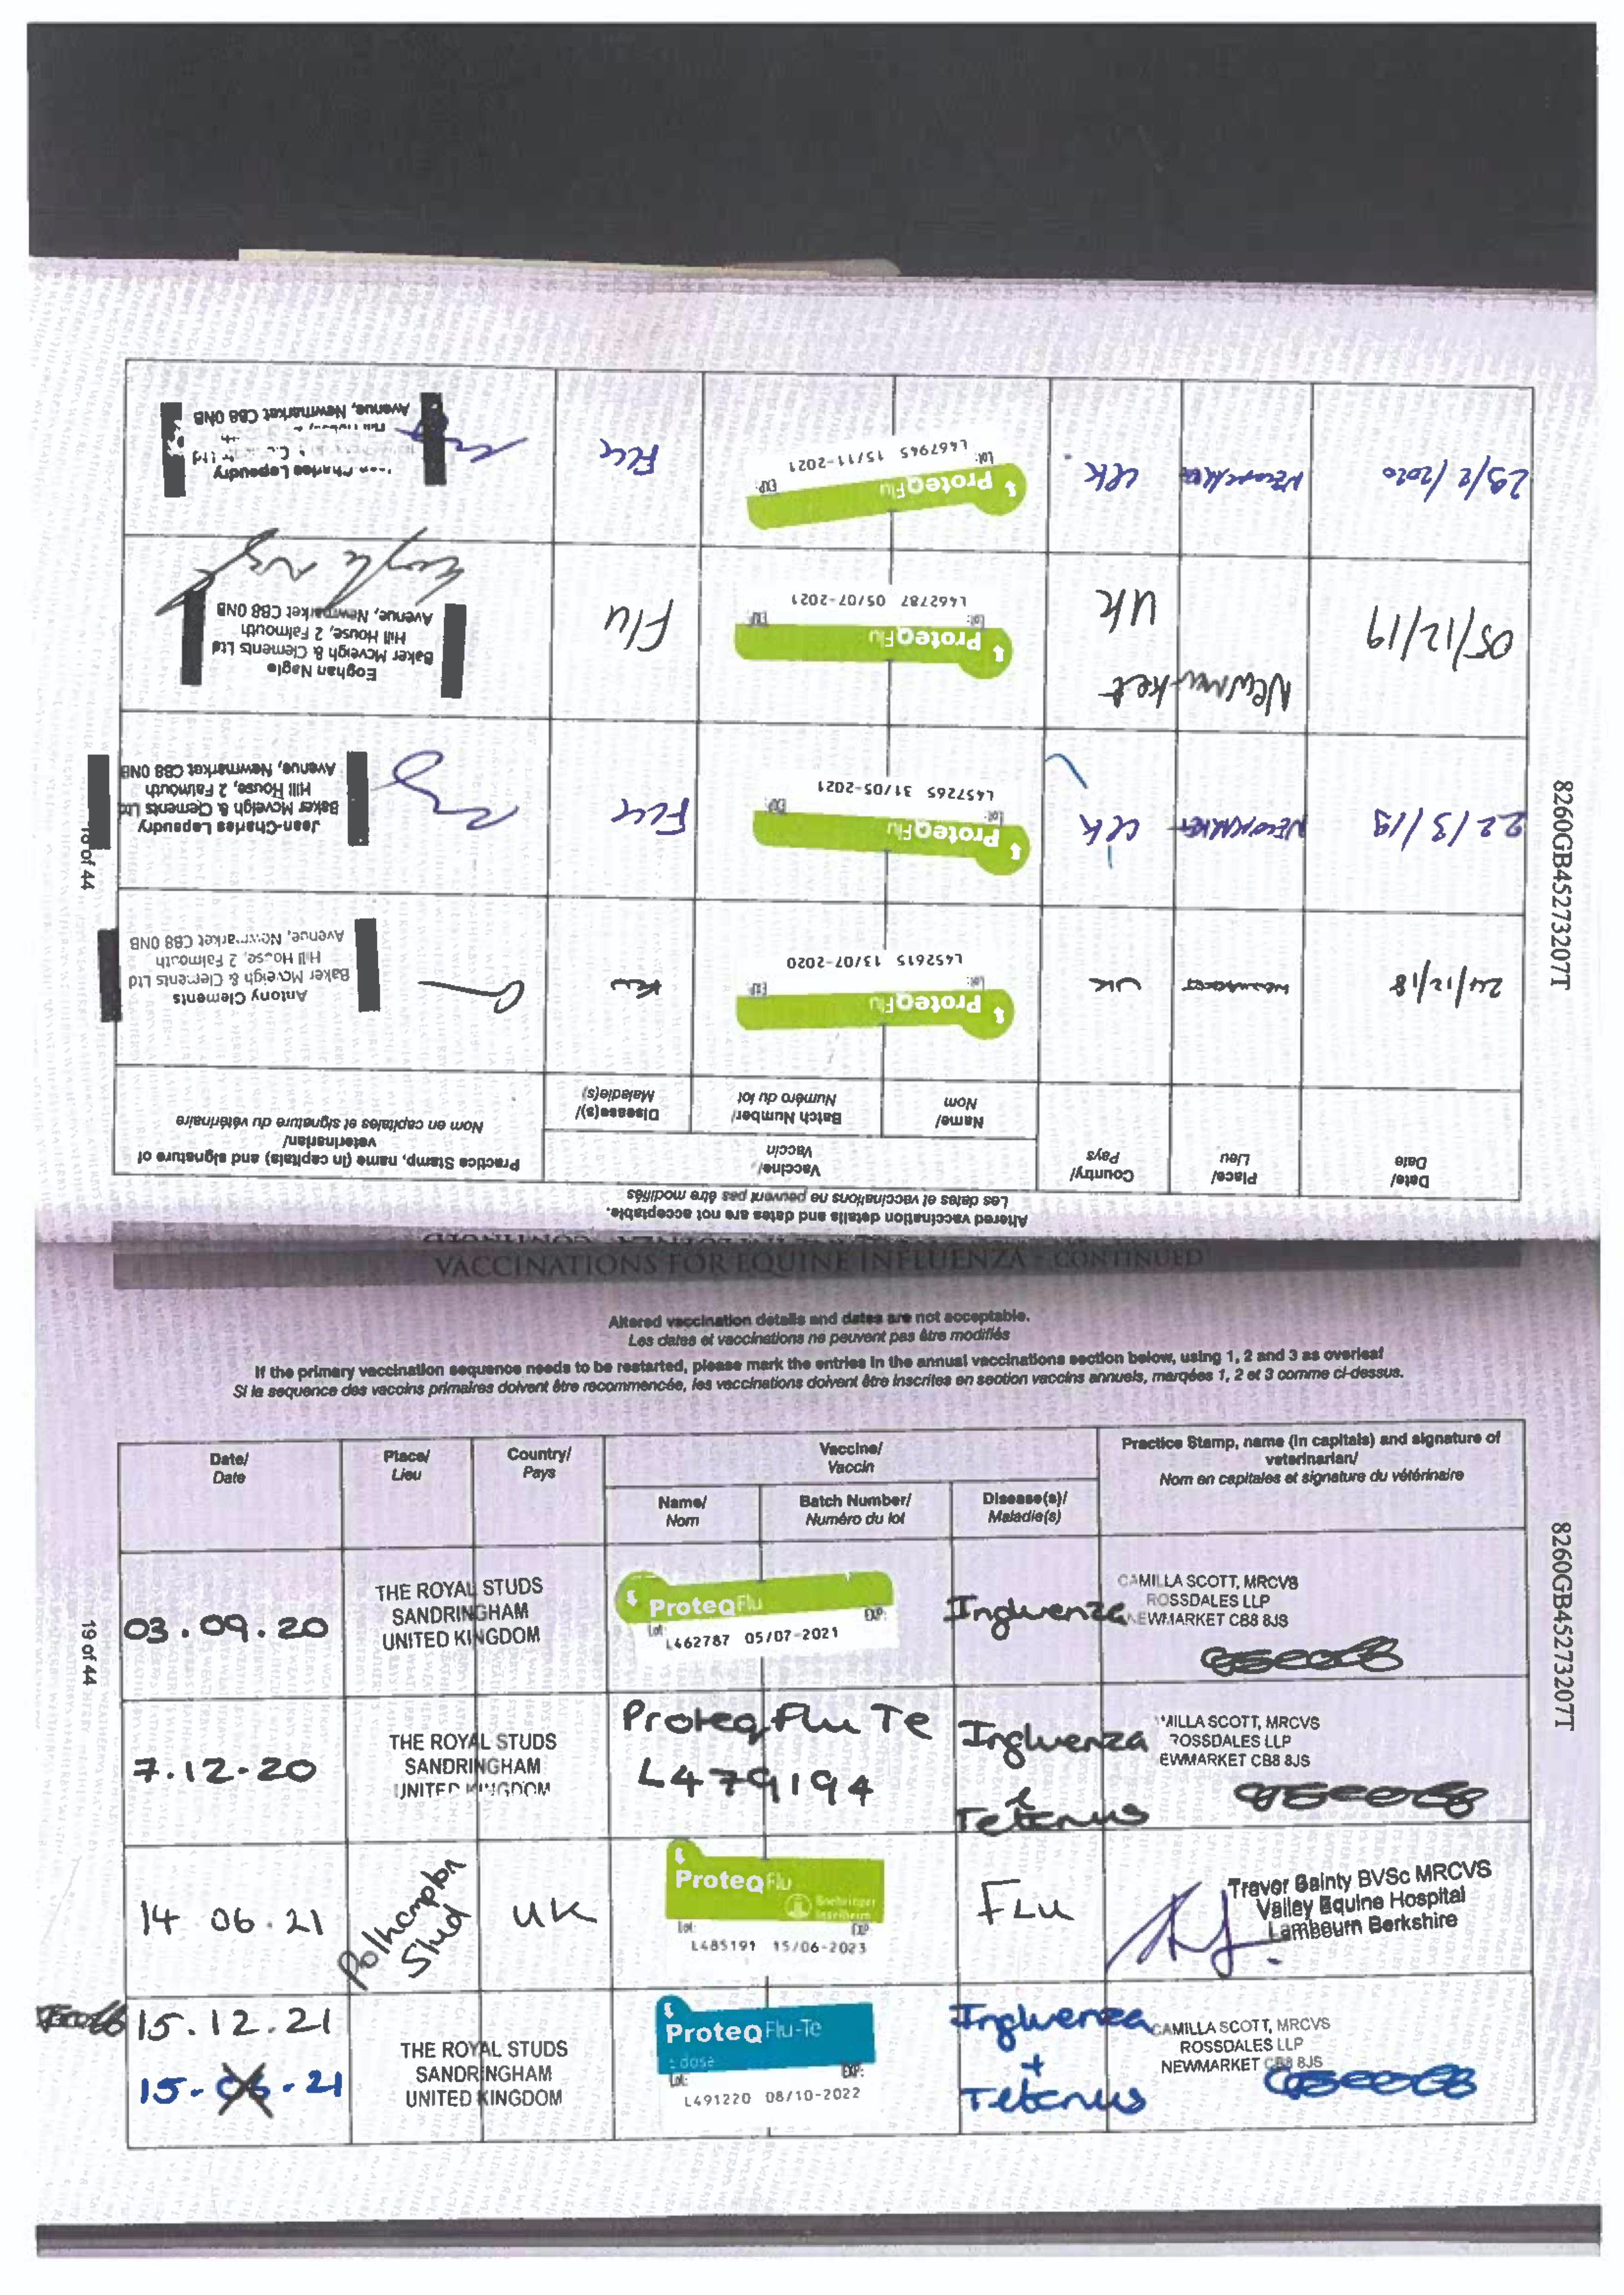 Altered vaccination details and dates are not acceptable.
Les dates et vaccinations ne peuvent pas être modifiés
Date/
Date
Place/
Lieu
Country/
Pays
Vaccine/
Vaccin
Name/
Nom
Batch Number/
Numéro du lot
Disease(s)/
Maladie(s)
Practice Stamp, name (in capitals) and signature of
veterinarian/
Nom en capitales et signature du vétérinaire
24/12/18
UK
ProteqFlu
Lot:
EXP:
L452615 13/07-2020
Flu
Antony Clements
Baker Mcveigh & Clements Ltd
Hill House, 2 Falmouth
Avenue, Newmarket CB8 0NB
22/3/19
NEWMARKET
UK
ProteqFlu
Lot:
EXP:
L457265 31/05-2021
Flu
Jean-Charles Lapeudry
Baker Mcveigh & Clements Ltd
Hill House, 2 Falmouth
Avenue, Newmarket CB8 0NB
05/12/19
Newmarket
UK
ProteqFlu
Lot:
EXP:
L462787 05/07-2021
Flu
Eoghan Nagle
Baker Mcveigh & Clements Ltd
Hill House, 2 Falmouth
Avenue, Newmarket CB8 0NB
/2/2020
UK
ProteqFlu
Lot:
EXP:
L467945 15/11-2021
Flu
Charles Lapeudry
Avenue, Newmarket CB8 0NB
8260GB45273207T
18 of 44
VACCINATIONS FOR EQUINE INFLUENZA - CONTINUED
Altered vaccination details and dates are not acceptable.
Les dates et vaccinations ne peuvent pas être modifiés
If the primary vaccination sequence needs to be restarted, please mark the entries in the annual vaccinations section below, using 1, 2 and 3 as overleaf
Si la sequence des vaccins primaires doivent être recommencée, les vaccinations doivent être inscrites en section vaccins annuels, marqées 1, 2 et 3 comme ci-dessus.
Date/
Date
Place/
Lieu
Country/
Pays
Vaccine/
Vaccin
Name/
Nom
Batch Number/
Numéro du lot
Disease(s)/
Maladie(s)
Practice Stamp, name (in capitals) and signature of
veterinarian/
Nom en capitales et signature du vétérinaire
03.09.20
THE ROYAL STUDS
SANDRINGHAM
UNITED KINGDOM
ProteqFlu
Lot:
EXP:
L462787 05/07-2021
Influenza
CAMILLA SCOTT, MRCVS
ROSSDALES LLP
NEWMARKET CB8 8JS
7.12.20
THE ROYAL STUDS
SANDRINGHAM
UNITED KINGDOM
Proteq Flu Te
L479194
Influenza
&
Tetanus
MILLA SCOTT, MRCVS
ROSSDALES LLP
EWMARKET CB8 8JS
14 06.21
Polhampton
Stud
UK
ProteqFlu
Boehringer
Ingelheim
Lot:
EXP
L485191 15/06-2023
FLU
Trevor Gainty BVSc MRCVS
Valley Equine Hospital
Lambourn Berkshire
15.12.21
15. .21
THE ROYAL STUDS
SANDRINGHAM
UNITED KINGDOM
ProteqFlu-Te
1 dose
Lot:
EXP:
L491220 08/10-2022
Influenza
+
Tetanus
CAMILLA SCOTT, MRCVS
ROSSDALES LLP
NEWMARKET CB8 8JS
8260GB45273207T
19 of 44